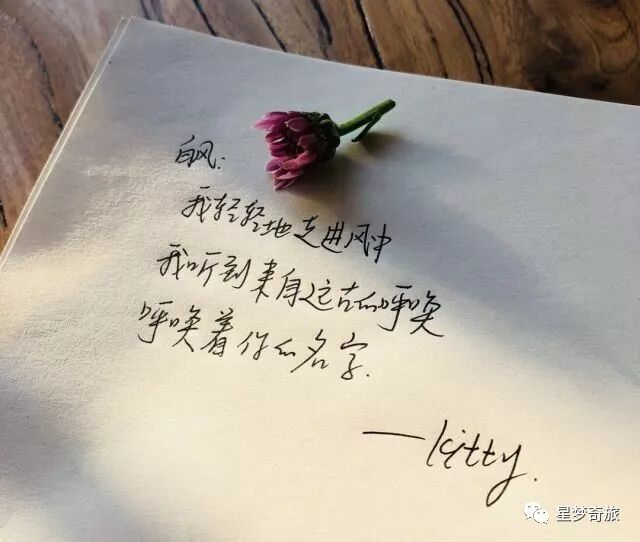 白风:
我轻轻地走进风中
我听到来自远古的呼唤
呼唤着你的名字.
—kitty.
星梦奇旅